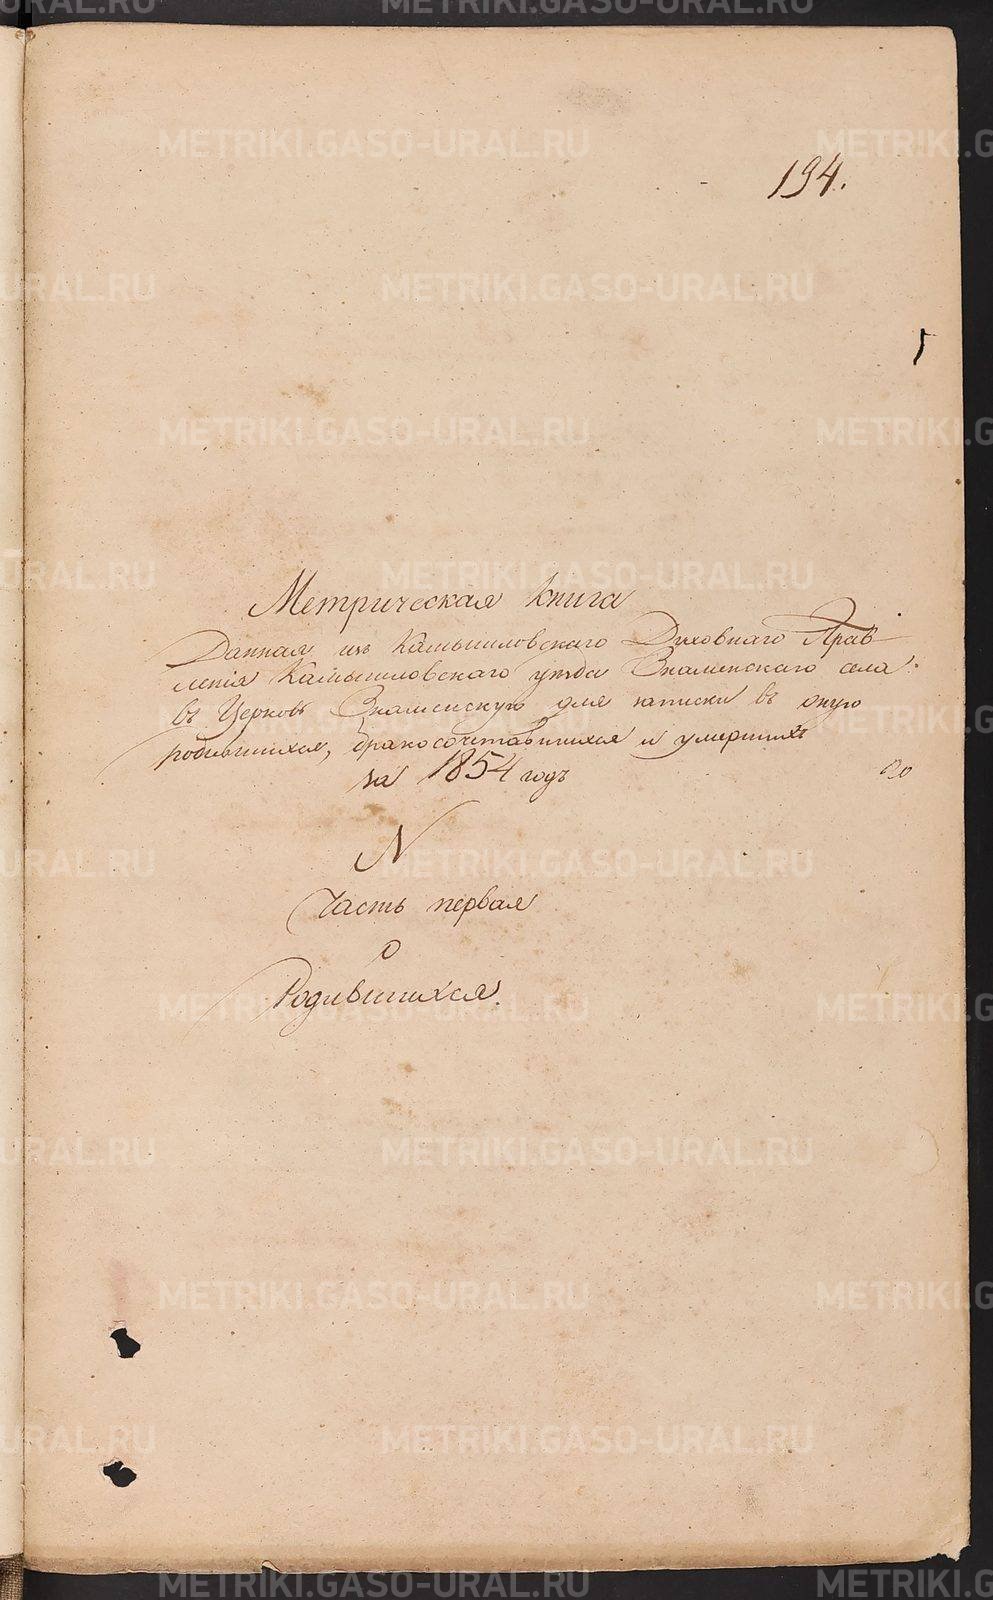 194.
Метрическая книга
Данная изъ Камышловскаго Духовнаго Прав
ленія Камышловскаго уѣзда Знаменскаго села
въ Церковь Знаменскую для записки въ оную
родившихся, бракосочетавшихся и умершихъ
на 1854 годъ
N
Часть первая
о
Родившихся.
METRIKI.GASO-URAL.RU